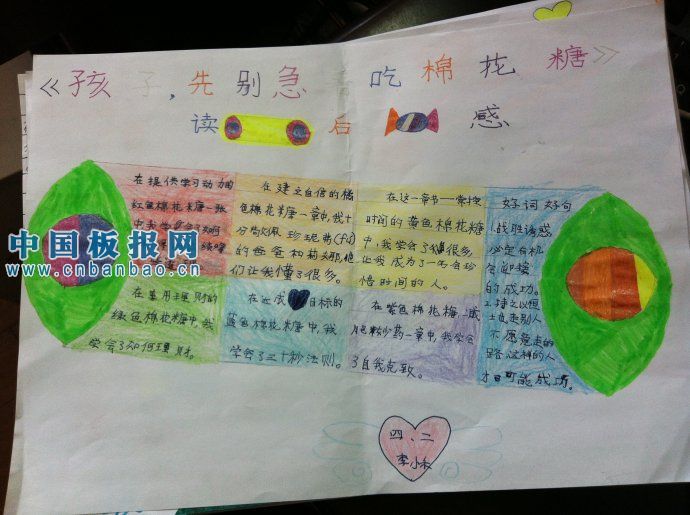 《孩子,先别急着吃棉花糖》
读后感
在提供学习动力的
红色棉花米唐一张
中我学会了如何
在建立自信的橘
色棉花米唐一章中,我十
分高兴
的爸爸和
们让我懂了很多。
在这一章节——掌控
时间的黄色棉花糖
中,我学会了很多,
让我成为了一名会珍
惜时间的人。
好词好句
1.战胜诱惑
必定有机
会迎接
的成功。
2.持之以恒
士也走别人
不愿竟走的
路,这样的人
才可能成功。
在善用理财的
绿色棉花米唐中,我
学会了如何理财。
在达成目标的
蓝色棉花米唐中,我
学会了三十秒法则。
在紫色棉花糖,
一章中,我学会
了自我克致。
四、二
李小
中国板报网
www.cnbanbao.cn